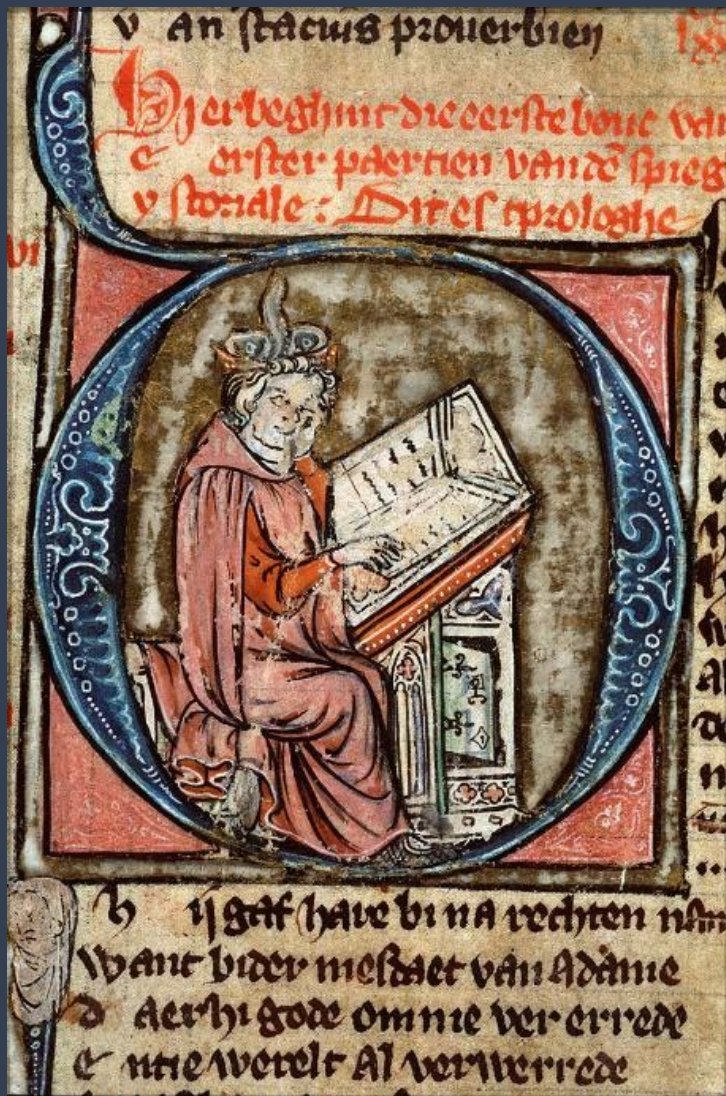 v an stacius prouerbien
Hier beghint die eerste bouc van
e erster paertien van dē spieg
y storiale: Dit es tprologhe
h ij gaf hare bi na rechten
want bider mesdaet van adame
d aer hi gode omme ver errede
e ntie werelt al verwerrede